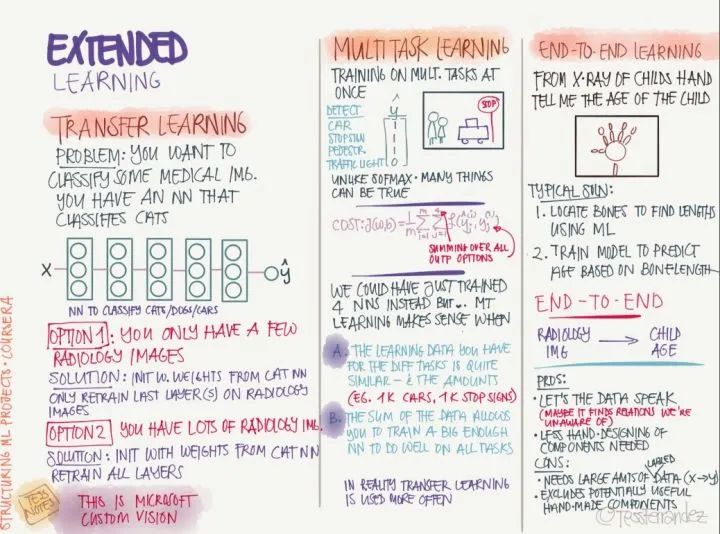 EXTENDED
LEARNING
TRANSFER LEARNING
PROBLEM: YOU WANT TO
CLASSIFY SOME MEDICAL IMG.
YOU HAVE AN NN THAT
CLASSIFIES CATS
X
ŷ
NN TO CLASSIFY CATS/DOGS/CARS
OPTION 1: YOU ONLY HAVE A FEW
RADIOLOGY IMAGES
SOLUTION: INIT W. WEIGHTS FROM CAT NN
ONLY RETRAIN LAST LAYER(S) ON RADIOLOGY
IMAGES
OPTION 2 YOU HAVE LOTS OF RADIOLOGY IMG.
SOLUTION: INIT WITH WEIGHTS FROM CAT NN
RETRAIN ALL LAYERS
TESS
NOTE
THIS IS MICROSOFT
CUSTOM VISION
STRUCTURING ML PROJECTS · COURSERA
MULTI TASK LEARNING
TRAINING ON MULT. TASKS AT
ONCE
DETECT
CAR
STOPSIGN
PEDESTR.
TRAFFIC LIGHT
ŷ
0
STOP
UNLIKE SOFMAX · MANY THINGS
CAN BE TRUE
COST: J(w,b) =
SUMMING OVER ALL
OUTP OPTIONS
WE COULD HAVE JUST TRAINED
4 NNS INSTEAD BUT... MT
LEARNING MAKES SENSE WHEN
A. THE LEARNING DATA YOU HAVE
FOR THE DIFF TASKS IS QUITE
SIMILAR – & THE AMOUNTS
(EG. 1K CARS, 1K STOP SIGNS)
B. THE SUM OF THE DATA ALLOWS
YOU TO TRAIN A BIG ENOUGH
NN TO DO WELL ON ALL TASKS
IN REALITY TRANSFER LEARNING
IS USED MORE OFTEN
END-TO-END LEARNING
FROM X-RAY OF CHILDS HAND
TELL ME THE AGE OF THE CHILD
TYPICAL SOLN:
1. LOCATE BONES TO FIND LENGTHS
USING ML
2. TRAIN MODEL TO PREDICT
AGE BASED ON BONELENGTH
END-TO-END
RADIOLOGY IMG → CHILD AGE
PROS:
• LET'S THE DATA SPEAK
(MAYBE IT FINDS RELATIONS WE'RE
UNAWARE OF)
• LESS HAND-DESIGNING OF
COMPONENTS NEEDED
CONS:
• NEEDS LARGE AMTS OF LABLED DATA (X→Y)
• EXCLUDES POTENTIALLY USEFUL
HAND-MADE COMPONENTS
©TessFerrandez